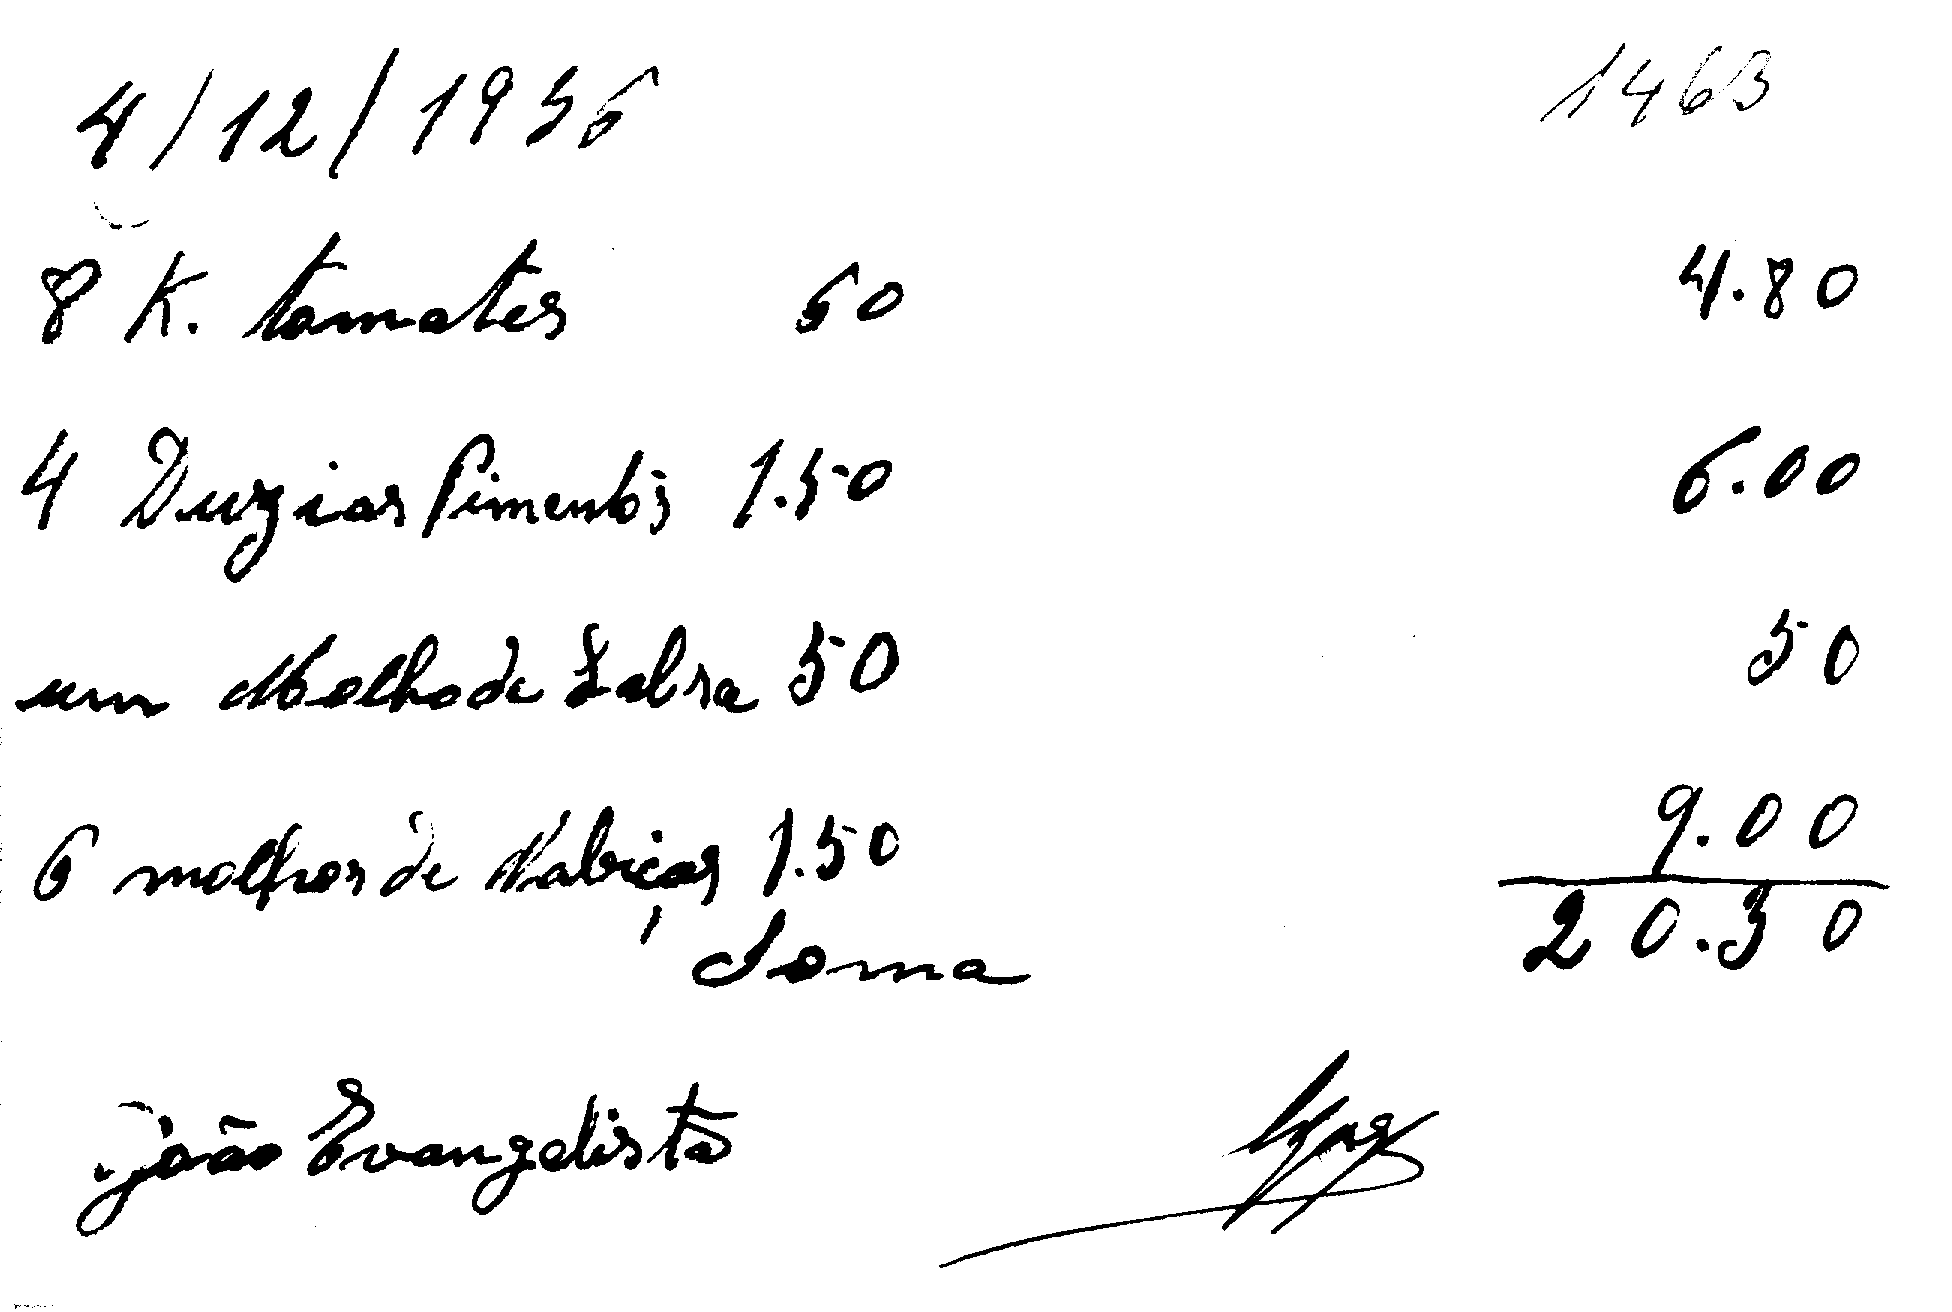 4/12/1956 1463
8 K. tomates 60 4.80
4 Duzias Pimentos 1.50 6.00
um Molho de Salsa 50 50
6 molhos de Nabiças 1.50 9.00
Soma 20.30
João Evangelista